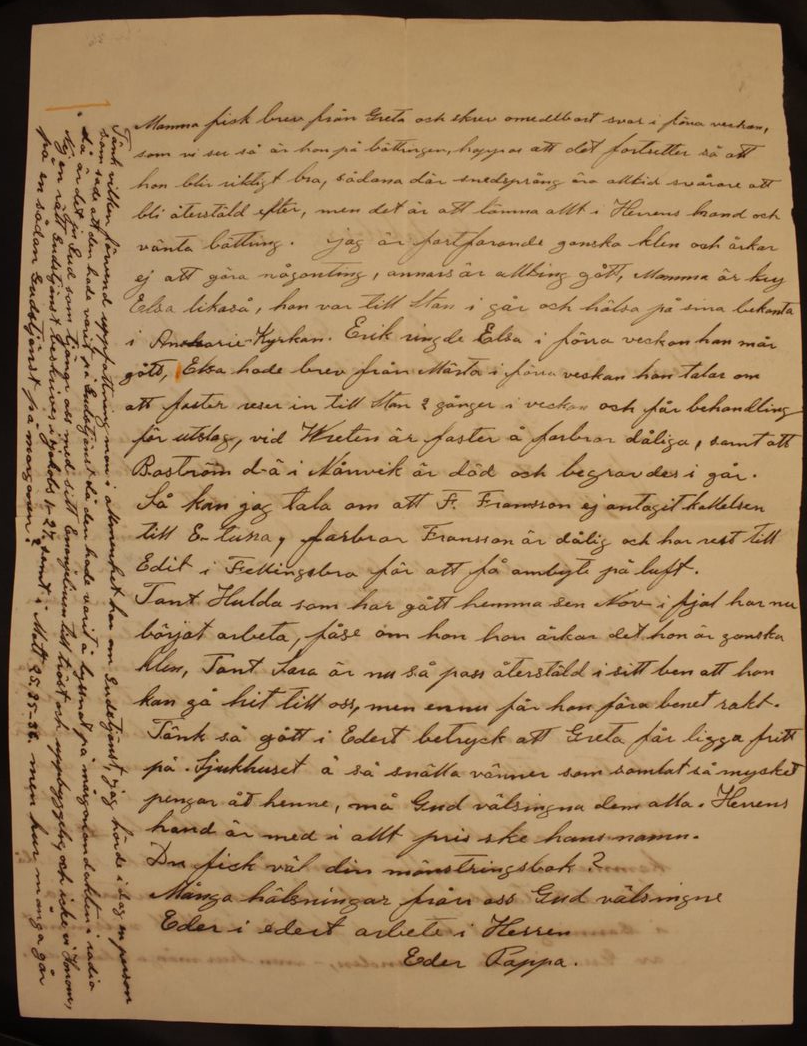 Mamma fick brev från Greta och skrev omedelbart svar i förra veckan,
som vi ser så är hon på bättringen, hoppas att det fortsetter så att
hon blir riktigt bra, sådana där snedsprång äro alltid svårare att
bli återstäld efter, men det är att lämna allt i Herrens hand och
vänta bättring. Jag är fortfarande ganska klen och orkar
ej att göra någonting, annars är allting gått, Mamma är kry
Elsa likaså, hon var till Stan i går och hälsa på sina bekanta
i Kyrkan. Erik ringde Elsa i förra veckan han mår
gått, Elsa hade brev från Märta i förra veckan hon talar om
att faster reser in till Stan 2 gånger i veckan och får behandling
för utslag, vid Wreten är faster å farbror dåliga, samt att
Boström d-ä i Nånvik är död och begravdes i går.
Så kan jag tala om att F. Fransson ej antagit kallelsen
till E-tuna, farbror Fransson är dålig och har rest till
Edit i Fellingsbro för att få ombyte på luft.
Tant Hulda som har gått hemma sen Nov i fjol har nu
börjat arbeta, fåse om hon hon orkar det hon är ganska
klen, Tant Sara är nu så pass återstäld i sitt ben att hon
kan gå hit till oss, men ennu får hon föra benet rakt.
Tänk så gått i Edert betryck att Greta får ligga fritt
på Sjukhuset å så snälla vänner som samlat så mycket
pengar åt henne, må Gud välsingna dem alla. Herrens
hand är med i allt pris ske hans namn.
Du fick väl din mönstringsbok?
Många hälsningar från oss Gud välsingne
Eder i edert arbete i Herren
Eder Pappa.
Tänk vilken uppfattning man i allmänhet har om Gudstjänst, jag hörde i dag en person
som sade att den hade varit på Gudstjänst då den hade varit å lyssnat på morgonandakten i radio
då är det ju Gud som tjänar oss med sitt Evangelium till tröst och uppbyggelse, och icke vi Honom,
en rätt Gudstjänst beskrives i Jakobs 1-27, samt i Matt 25, 35-36. men hur många går
på en sådan Gudstjänst på morgonen?